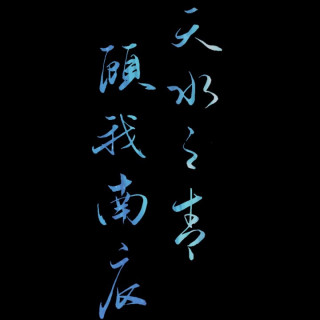 天水之青
頤我南辰